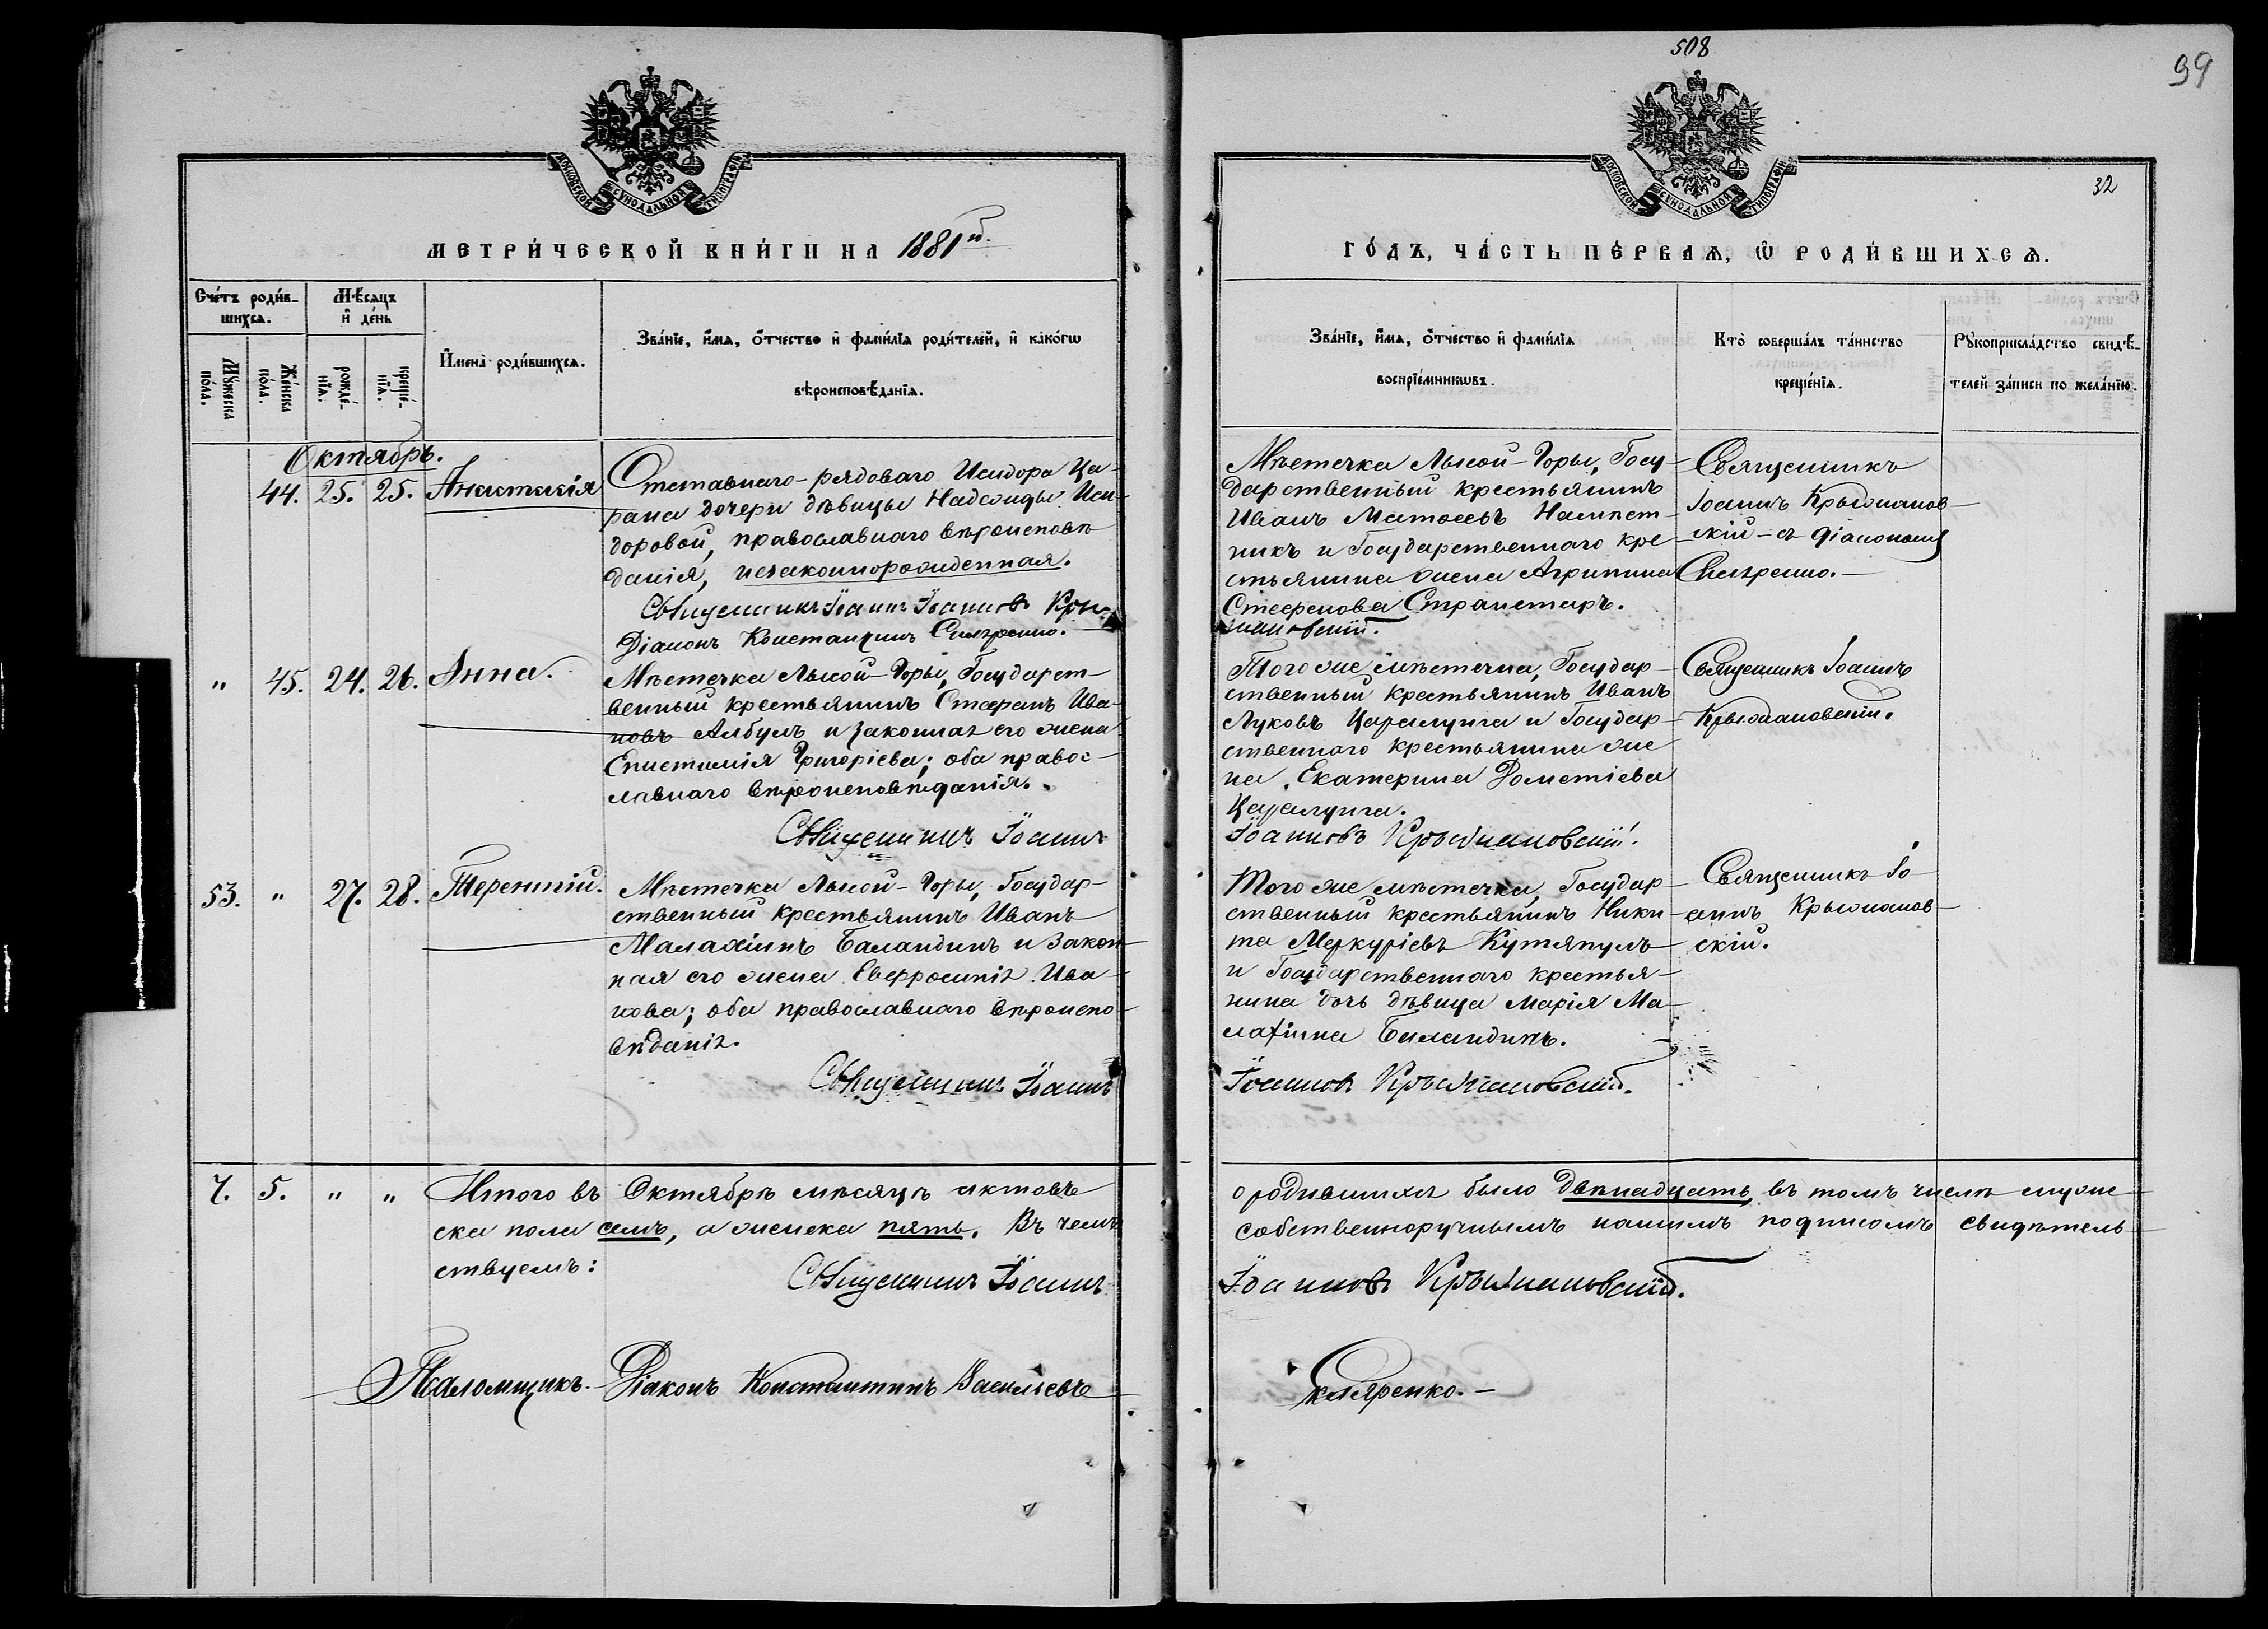 508
99
32
МОСКОВСКОЙ СѴНОДАЛЬНОЙ ТИПОГРАФІИ
МОСКОВСКОЙ СѴНОДАЛЬНОЙ ТИПОГРАФІИ
МЕТРИ́ЧЕСКОЙ КНИ́ГИ НА 1881й.
ГО́ДЪ, ЧА́СТЬ ПЕ́РВАѦ, Ѡ҆ РОДИ́ВШИХСѦ.
Сче́тъ роди́в-
шихсѧ.
Мѣ́сяцъ
и҆ де́нь
Мꙋ́жеска
по́ла.
Же́нска
по́ла.
рожде́-
нїѧ.
креще́-
нїѧ.
И҆мена̀ роди́вшихсѧ.
Зва́нїе, и҆́мѧ, ѻ҆́тчество и҆ фами́лїѧ роди́телей, и҆ како́гѡ
вѣроисповѣ́данїѧ.
Зва́нїе, и҆́мѧ, ѻ҆́тчество и҆ фами́лїѧ
воспрїе́мникѡвъ.
Кто̀ соверша́лъ та́инство
креще́нїѧ.
Рꙋкоприкла́дство свидѣ́-
телей за́писи по жела́нїю.
Октябрь.
44. 25. 25. Анастасія
Отставнаго-рядоваго Исидора Ца-
рана дочери дѣвицы Надежды Иси-
доровой, православнаго вѣроисповѣ-
данія, незаконнорожденная.
Священникъ Іоаннъ Іоанновъ Кры-
Діаконъ Константинъ Скляренко.
Мѣстечка Лысой-Горы, Госу-
дарственный крестьянинъ
Иванъ Матѳеевъ Намест-
никъ и Государственного кре-
стьянина жена Агрипина
Стефанова Странстаръ.
жановскій.
Священникъ
Іоаннъ Крыжановскій-
скій-съ діакономъ
Скляренко.-
" 45. 24. 26. Анна.
Мѣстечка Лысой-Горы, Государст-
венный крестьянинъ Стефанъ Ива-
новъ Албулъ и законная его жена
Епистимія Григоріева; оба правос-
лавнаго вѣроисповѣданія.
Священникъ Іоаннъ
Того же мѣстечка, Государ-
ственный крестьянинъ Иванъ
Луковъ Царалунга и Государ-
ственнаго крестьянина же
на Екатерина Дометіева
Царалунга.
Іоанновъ Крыжановскій.
Священникъ Іоаннъ
Крыжановскій.
53. " 27. 28. Терентій.
Мѣстечка Лысой-Горы, Государ-
ственный крестьянинъ Иванъ
Малахіинъ Баландинъ и закон-
ная его жена Евфросинія Ива-
нова; оба православнаго вѣроиспо-
вѣданія.
Священникъ Іоаннъ
Того же мѣстечка, Государ-
ственный крестьянинъ Ники-
та Меркуріевъ Кутяпулъ
и Государственнаго крестья-
нина дочь дѣвица Марія Ма-
лахіина Баландинъ.
Іоанновъ Крыжановскій.
Священникъ Іо-
аннъ Крыжанов-
скій.
7. 5. " " Итого въ Октябрѣ мѣсяцѣ актовъ о родившихся было двѣнадцать, въ томъ числѣ муже-
ска пола семъ, а женска пять. Въ чемъ собственноручнымъ нашимъ подписомъ свидѣтель-
ствуемъ:
Священникъ Іоаннъ Іоанновъ Крыжановскій.
Псаломщикъ-Діаконъ Константинъ Васильевъ Скляренко.-